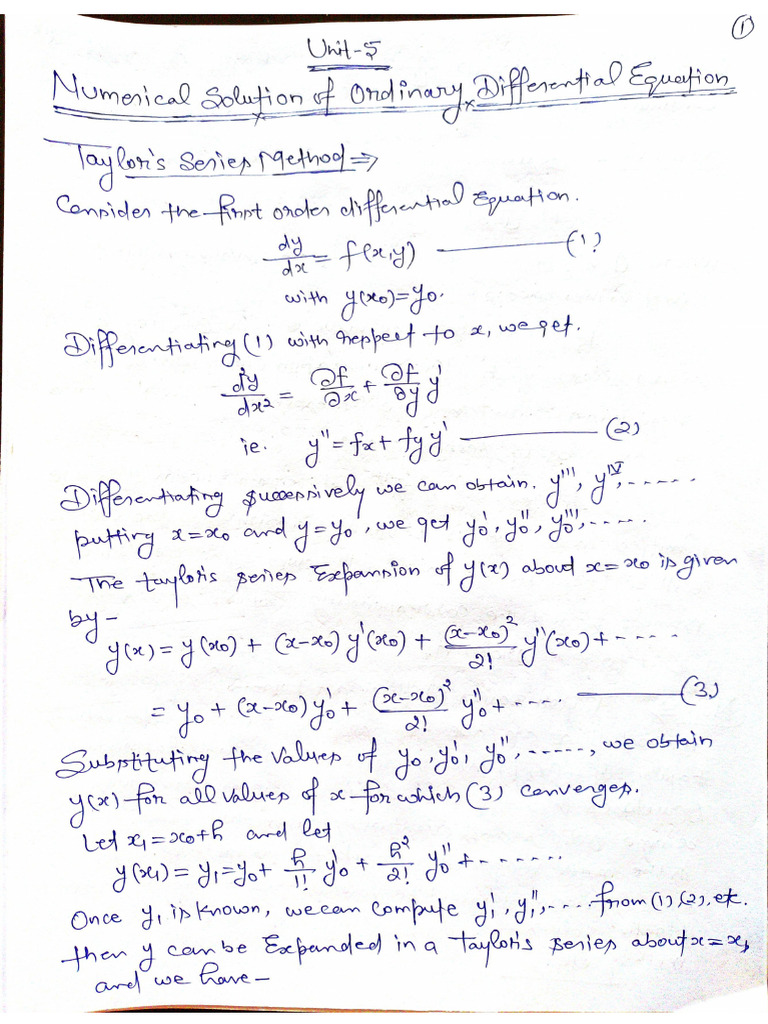 ①
Unit-5
Numerical Solution of Ordinary Differential Equation
Taylor's Series Method ⇒
Consider the first order differential Equation.
dy/dx = f(x,y) ——— (1)
with y(x₀)=y₀.
Differentiating (1) with respect to x, we get.
d²y/dx² = ∂f/∂x + ∂f/∂y y'
ie. y'' = fx + fy y' ——— (2)
Differentiating successively we can obtain. y''', y^IV, -----
putting x=x₀ and y=y₀, we get y₀', y₀'', y₀''', -----
The taylor's series Expansion of y(x) about x=x₀ is given
by-
y(x) = y(x₀) + (x-x₀) y'(x₀) + (x-x₀)²/2! y''(x₀) + ----
= y₀ + (x-x₀) y₀' + (x-x₀)²/2! y₀'' + ---- ——— (3)
Substituting the values of y₀, y₀', y₀'', -----, we obtain
y(x) for all values of x for which (3) converges.
Let x₁=x₀+h and let
y(x₁) = y₁ = y₀ + h/1! y₀' + h²/2! y₀'' + ------
Once y₁ is known, we can compute y₁', y₁'', ---- from (1), (2), etc.
then y can be Expanded in a Taylor's series about x=x₁
and we have-